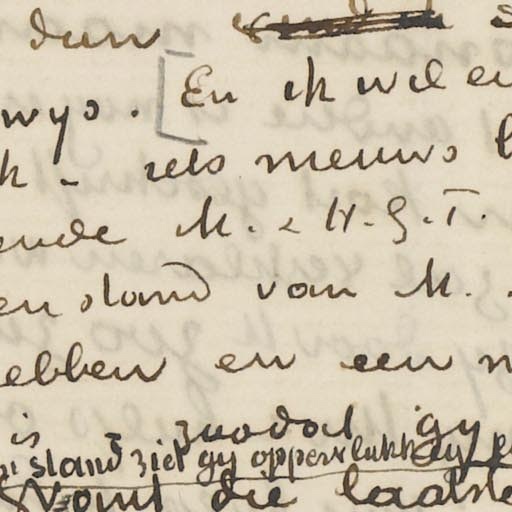 dun
wys. [En ik wil ee
k - iets nieuws b
ende M. & H.G.T.
en stand van M.
ebben en een n
is zoodat gy
stand ziet gy oppervlakkig
Want die laatste